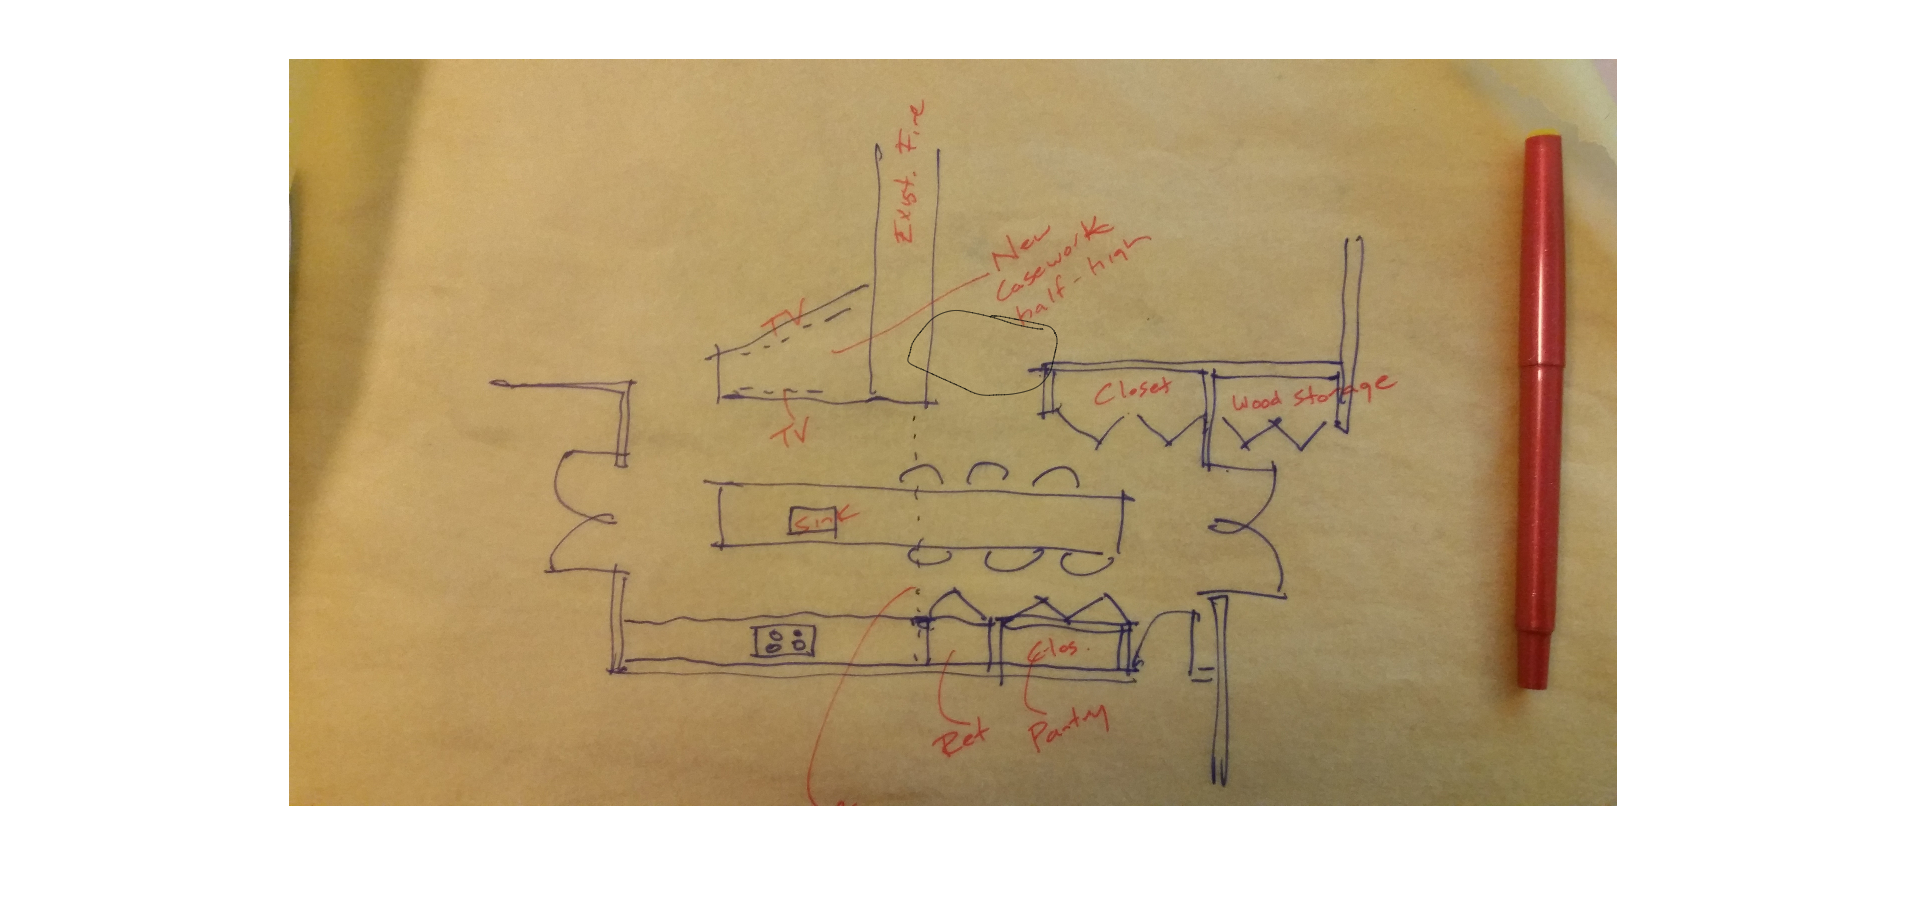 Exist. Fire
New
Casework
half-high
TV
TV
Closet
Wood Storage
Sink
Clos.
Ref
Pantry